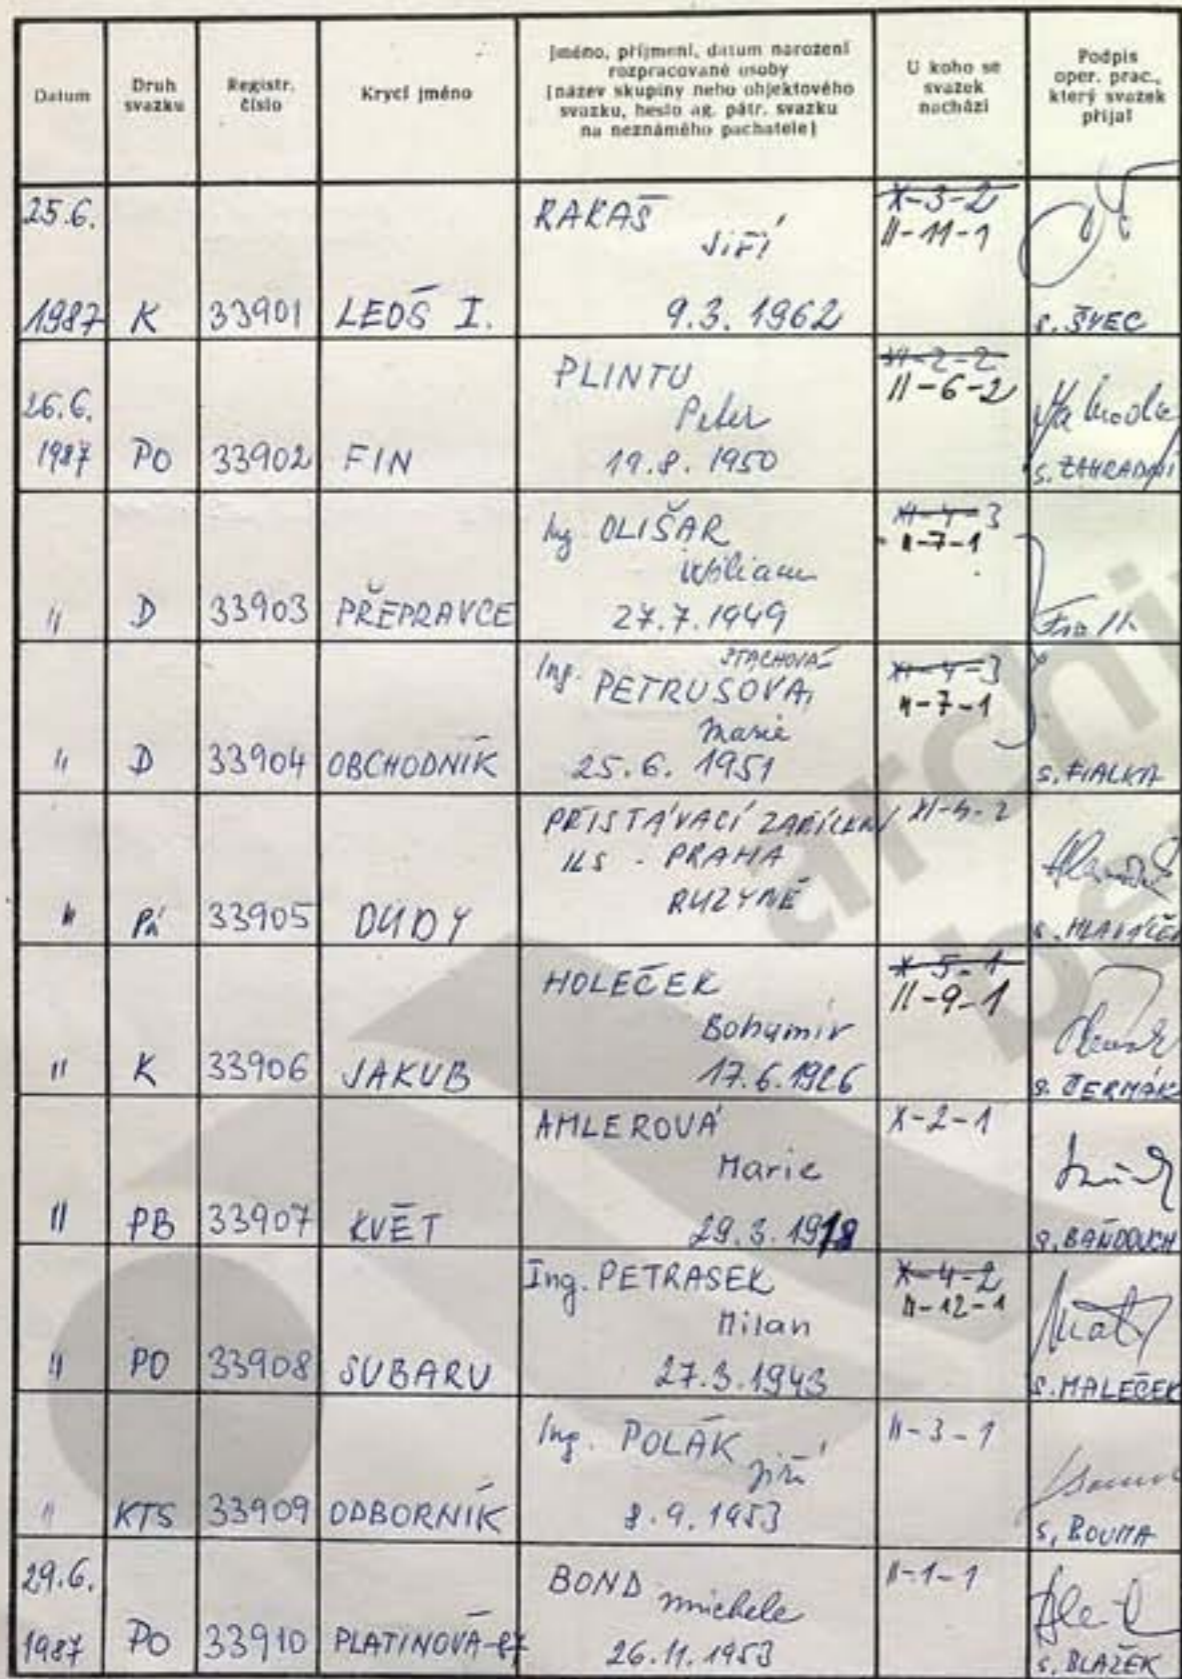 Datum
Druh
svazku
Registr.
číslo
Krycí jméno
Jméno, příjmení, datum narození
rozpracované osoby
(název skupiny nebo objektového
svazku, heslo ag. pátr. svazku
na neznámého pachatele)
U koho se
svazek
nachází
Podpis
oper. prac.,
který svazek
přijal
25.6.
1987 K 33901 LEOŠ I.
RAKAŠ
Jiří
9.3. 1962
X-3-2
II-11-1
s. ŠVEC
26.6.
1987 PO 33902 FIN
PLINTU
Peter
19.8. 1950
II-6-2
s. ZAHRADNÍ
" D 33903 PŘEPRAVCE
Ing. OLIŠAR
Wiliam
27.7.1949
II-7-1
" D 33904 OBCHODNÍK
STACHOVÁ
Ing. PETRUSOVÁ,
Marie
25.6. 1951
II-7-1
s. FIALKA
" Pá 33905 DUDY
PŘISTÁVACÍ ZAŘÍZENÍ
ILS - PRAHA
RUZYNĚ
XI-4-2
s. HLAVÁČEK
" K 33906 JAKUB
HOLEČEK
Bohumír
17.6.1926
X-5-1
II-9-1
s. ČERMÁK
" PB 33907 KVĚT
AMLEROVÁ
Marie
29.3.1918
X-2-1
s. BAŇDOUCH
" PO 33908 SUBARU
Ing. PETRASEK
Milan
27.3.1943
X-4-2
II-12-1
s. MALEČEK
" KTS 33909 ODBORNÍK
Ing. POLÁK
Jiří
8.9.1953
II-3-1
s. BOUMA
29.6.
1987 PO 33910 PLATINOVÁ-87
BOND Michele
26.11.1953
II-1-1
s. BLAŽEK